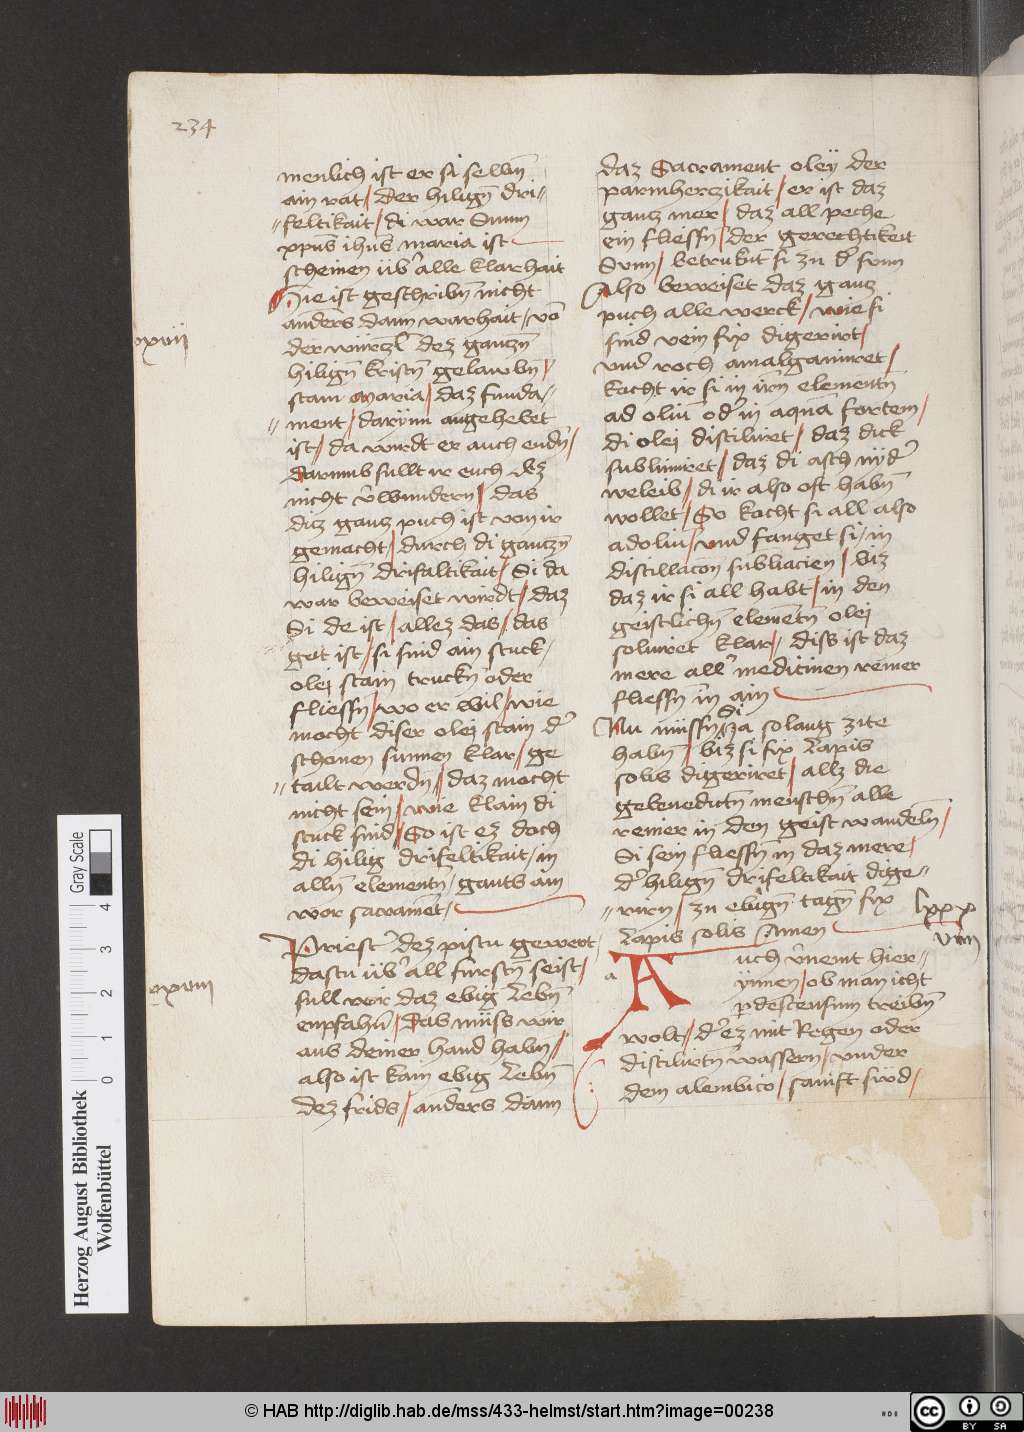 234
menlich ist er si selbn̄
ain rat / Der hilign̄ dri-
feltikait / di war Sunn
xpūs ihūs maria ist
scheinen üb̉ alle klarhait
Hie ist geschribn̄ nicht
anders dann warhait / vō
der würczl̄ dez gantzn̄
hilign̄ kristn̄ gelawbn̄ /
stam maria / daz funda-
ment / darynn angehebet
ist / da wirdt er auch endn̄ /
Darumb sullt ir euch dez
nicht v̉wundern / das
ditz gantz puch ist von ir
gemacht / durch di gantzn̄
hilign̄ drifaltikait / Si da
war beweiset wirdt / daz
Si de ist / allez das / das
got ist / si sind ain stuck /
olei stain truckn̄ oder
fliessn̄ / wo er wil / wie
mocht diser olei stain d̉
schonen sunnen klar / ge
tailt werdn̄ / daz mocht
nicht sein / wie klain di
stuck sind / So ist ez doch
di hilig drifeltikait / in
alln̄ elementn̄ / gants ain
wor sacramēt /
Priest̉ dez pistu gewert
dastu üb̉ all furstn̄ seist /
sull wir daz ebig Lebn̄
enpfahn̄ / das müss wir
aus deiner hand habn̄ //
also ist kain ebig Lebn̄
dez frids // anders dann
xxvii
xxviii
daz Sacrament oleÿ der
parmherczikait / er ist daz
gantz mer / daz all peche
ein fliessn̄ / der gerechtikeit
Sunn / betrukt̄ si zu d̉ sunn
Also beweiset daz gantz
puch alle werck / wie si
sind rein fix digerirt /
und roch amalgamiret /
kocht ir si in irn̄ elementn̄
ad oliū od̉ in aquā fortem /
di olei distiliret / daz dick
sublimiret / daz di asch nÿd̉
weleib / di ir also oft habn̄
wollet / So kocht si all also
ad oliū / und fanget si / in
distillacōn subliacien / biz
daz ir si all habt / in den
geistlichn̄ elemētn̄ olei
soluiret klar // diss ist daz
mere all̉ medicinen reiner
fliessn̄ in ain
Nu müssn̄ Si da solang zite
habn̄ / biz si fix Lapis
solis digeriret / allz die
gebenedictn̄ menschn̄ alle
reiner in den geist wandeln̄ /
Si sein fliessn̄ in daz mere /
d̉ hilign̄ drifeltikait dige-
rirn / zu ebign̄ tagn̄ fix
Lapis solis Amen
lxxx
viiii
a
Auch v̉nemt hier-
ÿnnen / ob man icht
p̱ descensum treibn̄
wolt // d̉ ez mit Regen oder
distilirtn̄ wassern / under
dem alembico / sanift süd /
Herzog August Bibliothek
Wolfenbüttel
Gray Scale
0 1 2 3 4
HAB
© HAB http://diglib.hab.de/mss/433-helmst/start.htm?image=00238
cc BY SA